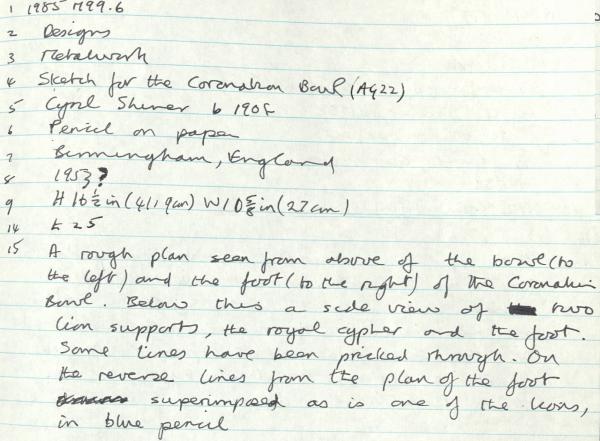 1 1985 M99.6
2 Designs
3 Metalwork
4 Sketch for the Coronation Bowl (A922)
5 Cyril Shiner b 1908
6 Pencil on paper
7 Birmingham, England
8 1953?
9 H 16½in (41,9cm) W10⅝in (27cm)
14 £25
15 A rough plan seen from above of the bowl (to
the left) and the foot (to the right) of the Coronation
Bowl. Below this a side view of two
lion supports, the royal cypher and the foot.
Some lines have been pricked through. On
the reverse lines from the plan of the foot
superimposed as is one of the lions,
in blue pencil